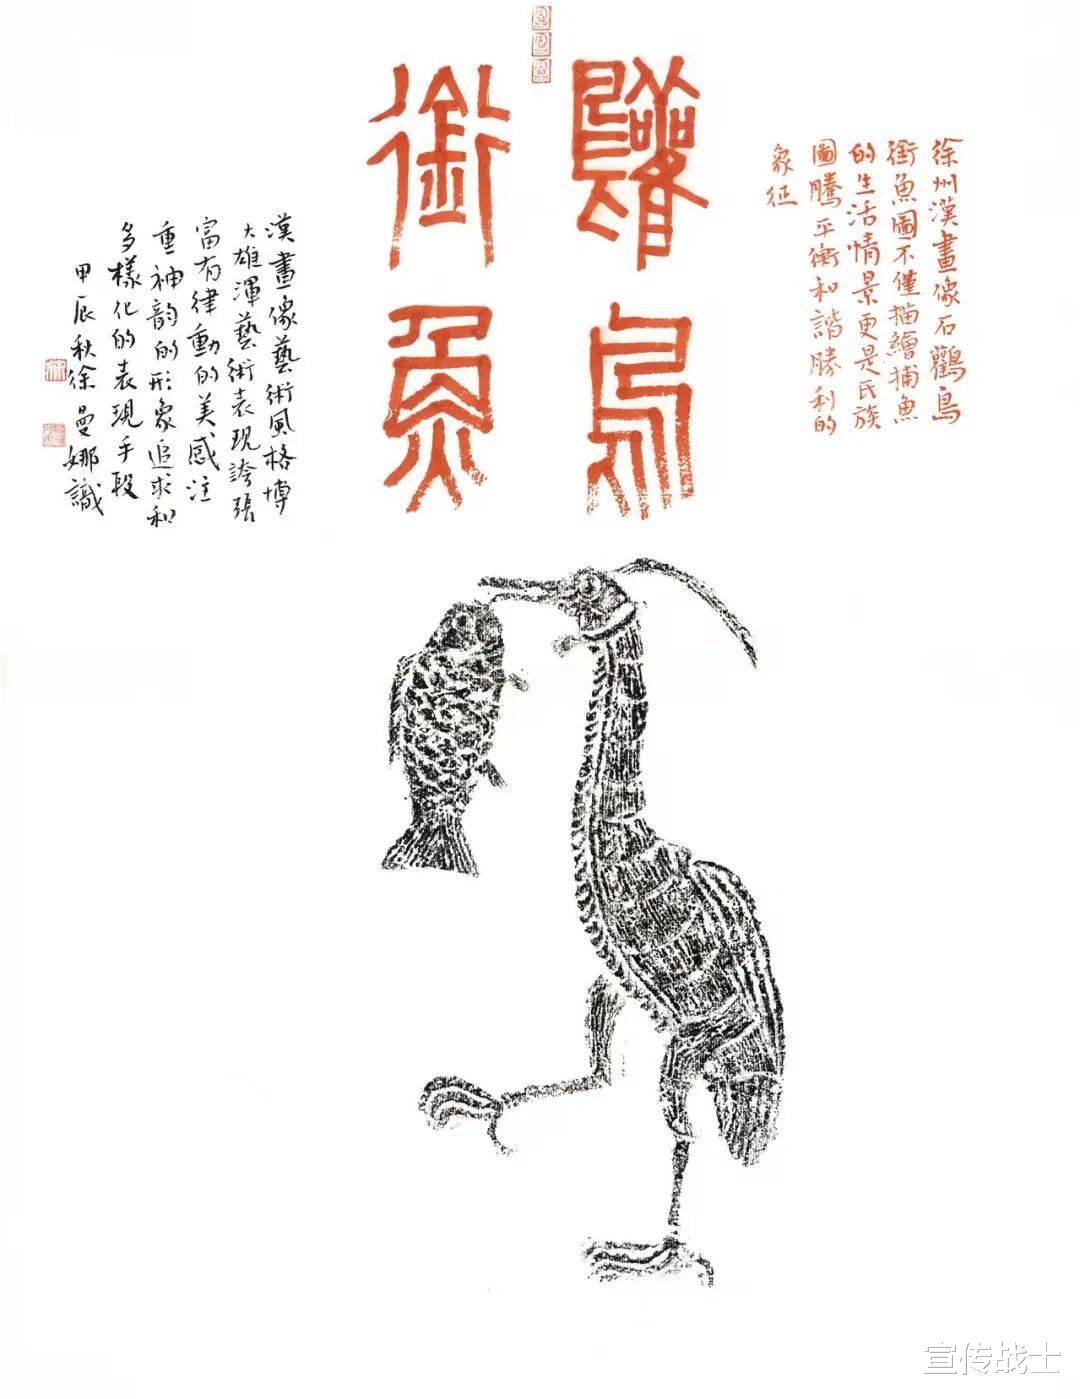 鸛鳥
銜魚
徐州漢畫像石鸛鳥
銜魚圖不僅描繪捕魚
的生活情景更是氏族
圖騰平衡和諧勝利的
象征
漢畫像藝術風格博
大雄渾藝術表現誇張
富有律動的美感注
重神韵的形象追求和
多樣化的表現手段
甲辰秋徐曼娜識
宣传战士